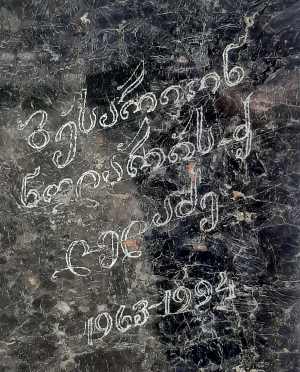 ბესარიონ
ნოდარის-ძე
1963-1994